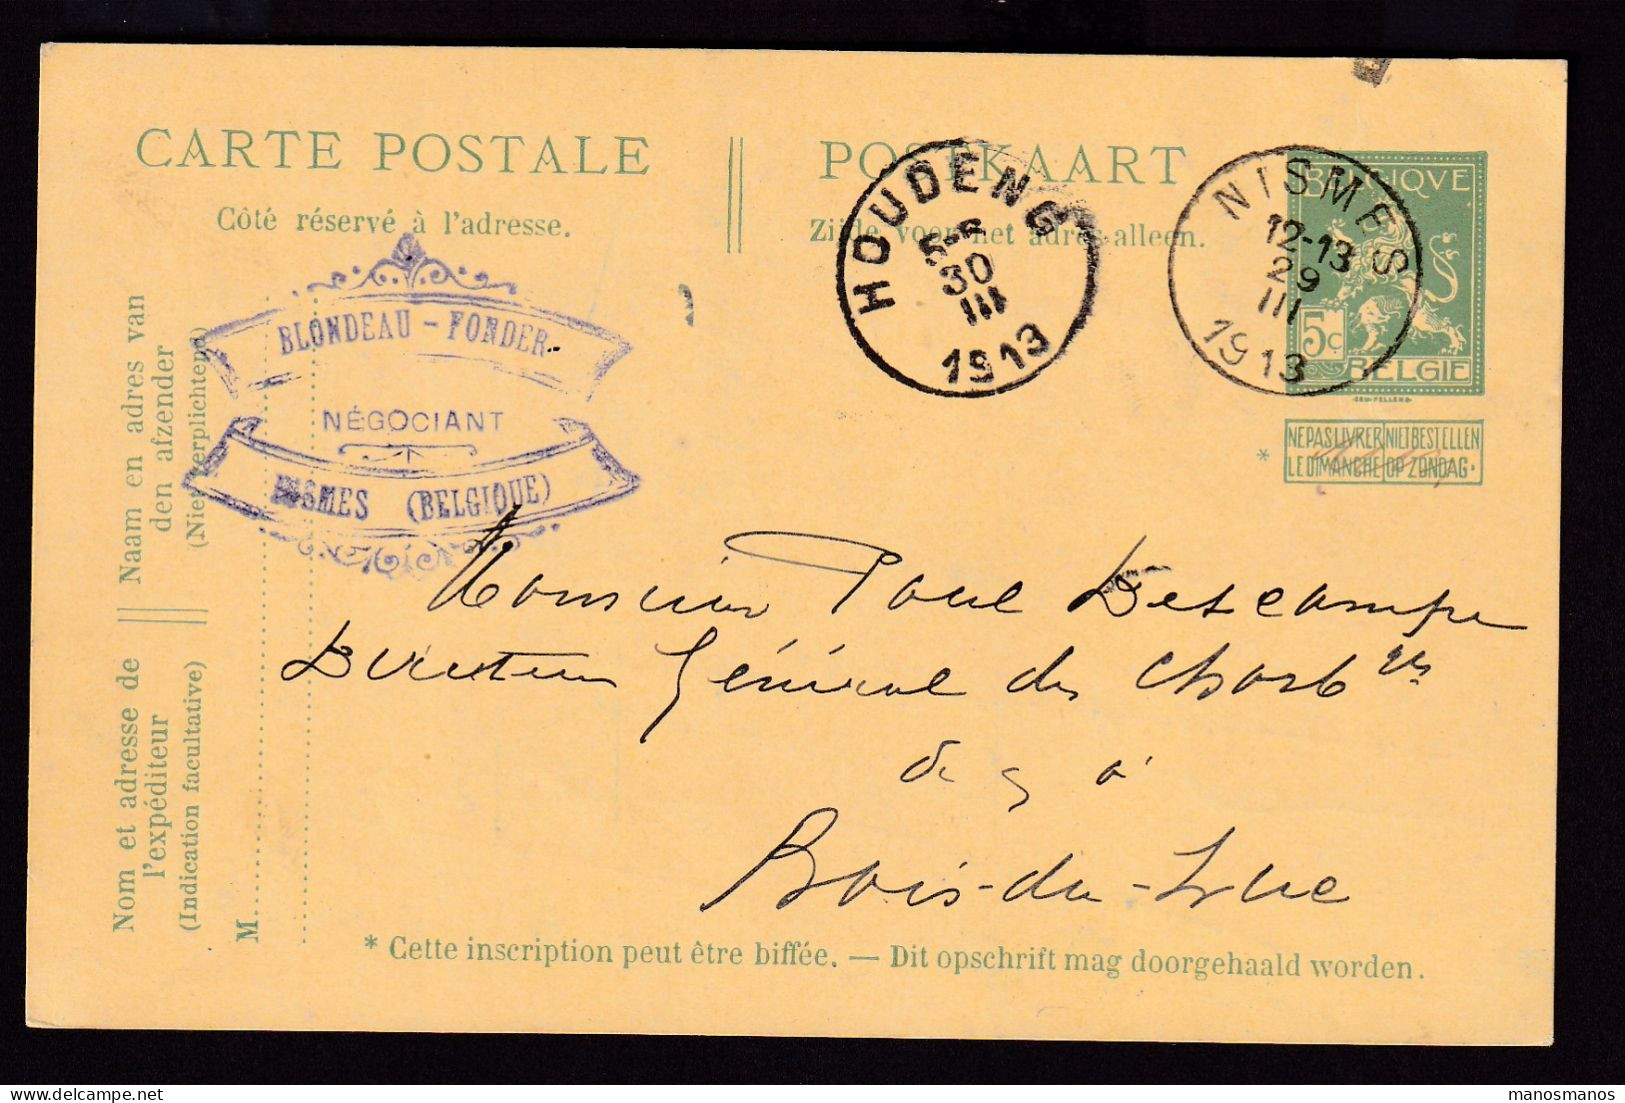 CARTE POSTALE
POSTKAART
Côté réservé à l'adresse.
Zijde voor het adres alleen.
HOUDENG
30
III
1913
NISMES
12-13
29
III
1913
BELGIQVE
5c
BELGIE
NE PAS LIVRER NIET BESTELLEN
LE DIMANCHE OP ZONDAG.
*
BLONDEAU - FONDER
NÉGOCIANT
NISMES (BELGIQUE)
Naam en adres van
den afzender
(Niet verplichtend)
Nom et adresse de
l'expéditeur
(Indication facultative)
M
Monsieur Paul Descamps
Directeur Général des Charb
de à
Bois-du-Luc
* Cette inscription peut être biffée. — Dit opschrift mag doorgehaald worden.
manosmanos